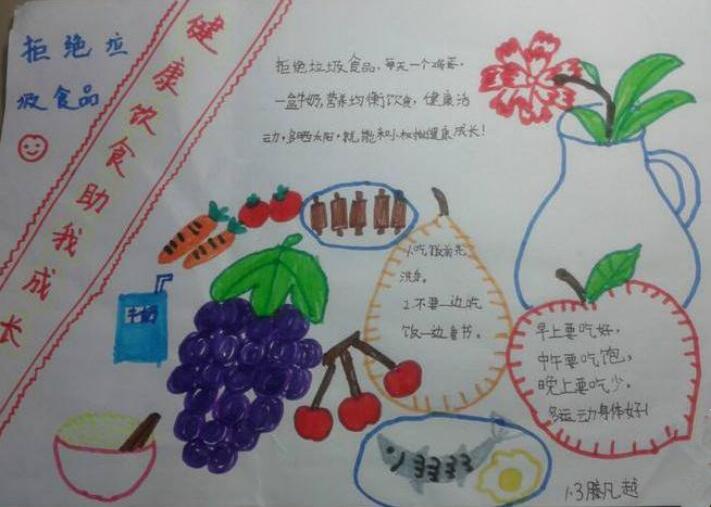 拒绝垃
圾食品
健康饮食助我成长
拒绝垃圾食品,每天一个鸡蛋,
一盒牛奶,营养均衡饮食,健康活
动,多晒太阳,就能和小树苗健康成长!
1.吃饭前先
洗手。
2.不要一边吃
饭一边看书。
早上要吃好,
中午要吃饱,
晚上要吃少,
多运动身体好!
牛奶
1.3滕凡越